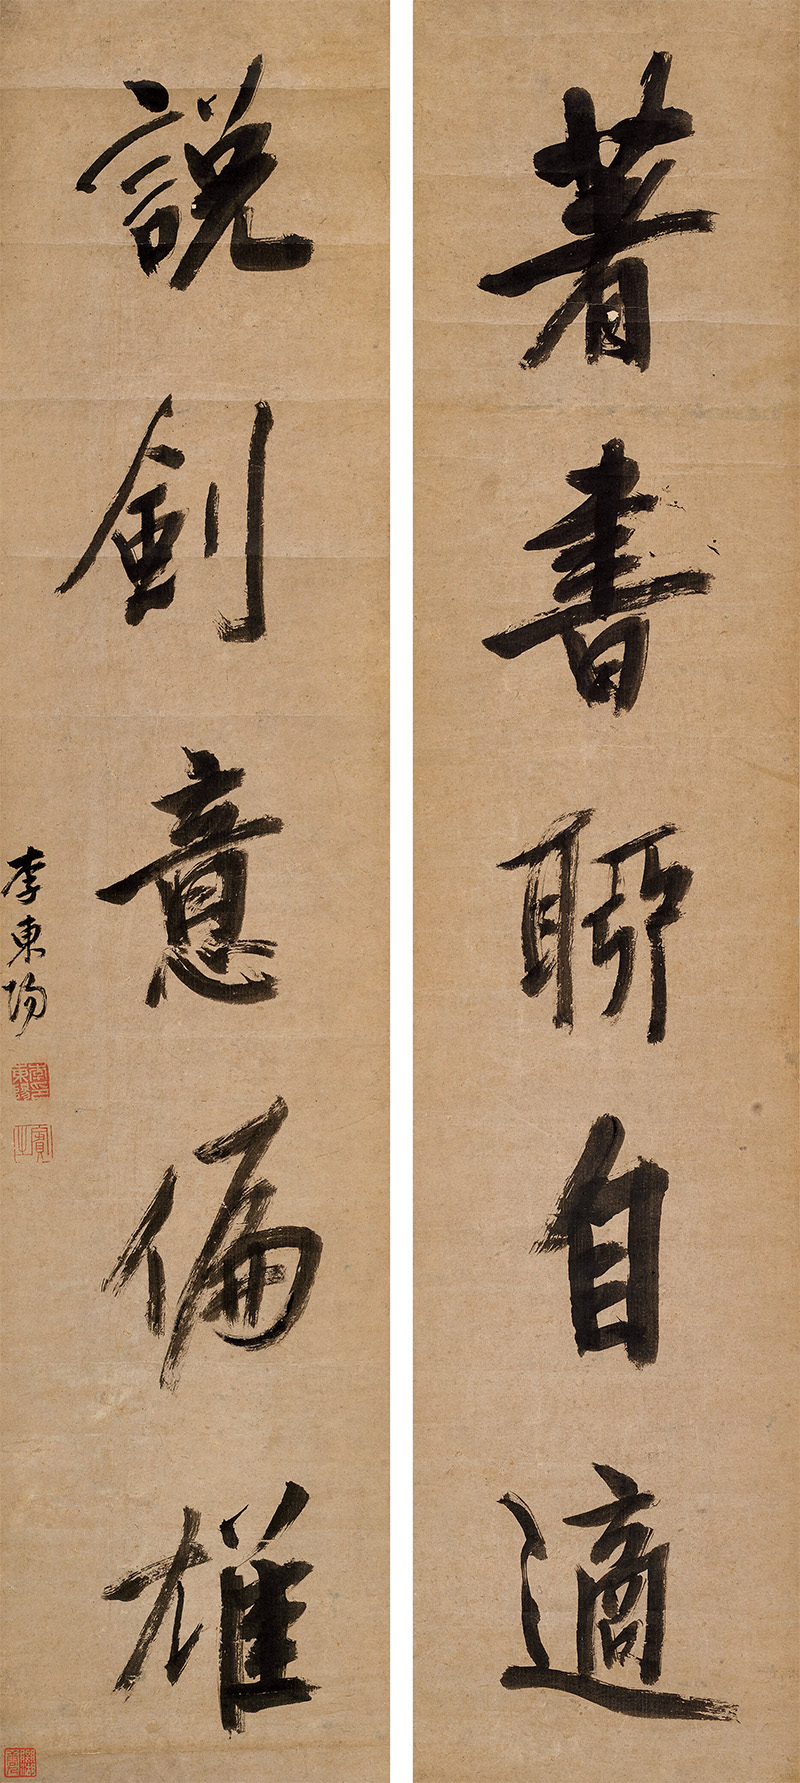 著書聊自適
説劍意偏雄
李東陽
賓之